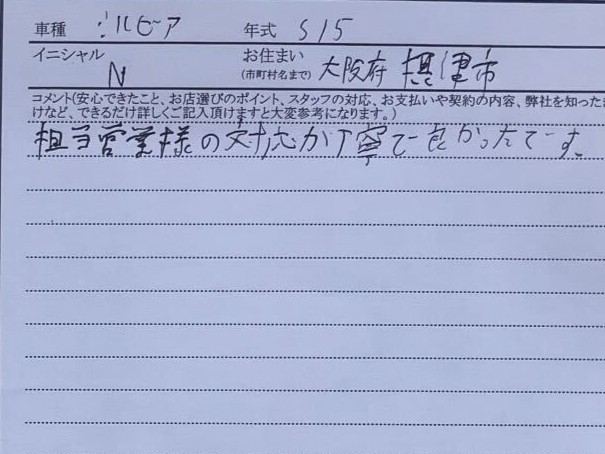 車種 シルビア 年式 S15
イニシャル N お住まい (市町村名まで) 大阪府 摂津市
コメント(安心できたこと、お店選びのポイント、スタッフの対応、お支払いや契約の内容、弊社を知った
けなど、できるだけ詳しくご記入頂けますと大変参考になります。)
担当営業様の対応が丁寧で良かったです。